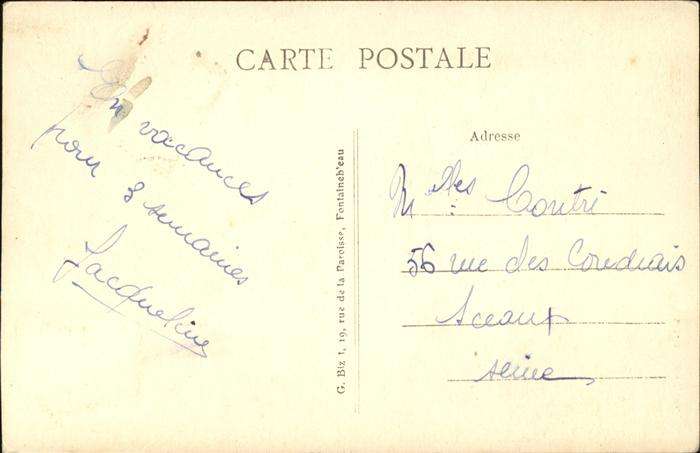 CARTE POSTALE
En vacances
pour 3 semaines
Jacqueline
G. Biz t, 19, rue de la Paroisse, Fontainebl'eau
Adresse
Melles Contri
56 rue des Coudrais
Sceaux
Seine